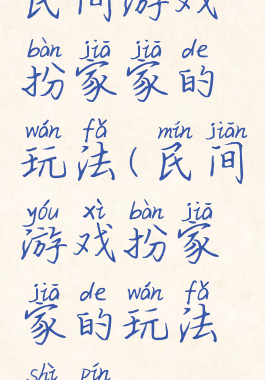 民间游戏
bàn jiā jiā de
扮家家的
wán fǎ mín jiān
玩法(民间
yóu xì bàn jiā
游戏扮家
jiā de wán fǎ
家的玩法
shì pín